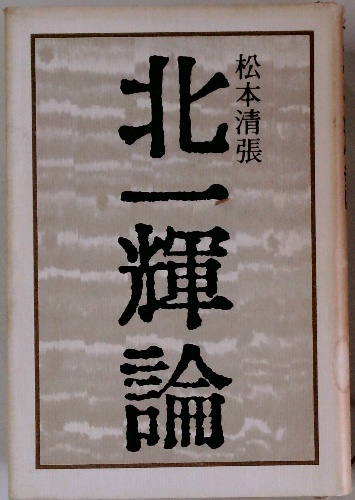 松本清張
北一輝論